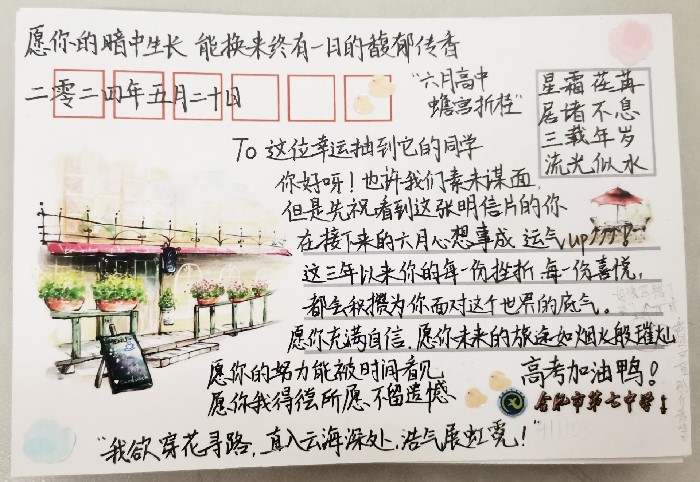 愿你的暗中生长 能换来终有一日的馥郁传香
二零二四年五月二十日
"六月高中
蟾宫折桂"
星霜荏苒
居诸不息
三载年岁
流光似水
To 这位幸运抽到它的同学
你好呀！也许我们素未谋面，
但是先祝看到这张明信片的你
在接下来的六月心想事成 运气up↗↗↗！
这三年以来你的每一份挫折，每一份喜悦，
都会积攒为你面对这个世界的底气。
愿你充满自信，愿你未来的旅途如烟火般璀灿
愿你的努力能被时间看见
愿你我得偿所愿 不留遗憾
高考加油鸭！
合肥市第七中学
"我欲穿花寻路，直入云海深处，浩气展虹霓！"